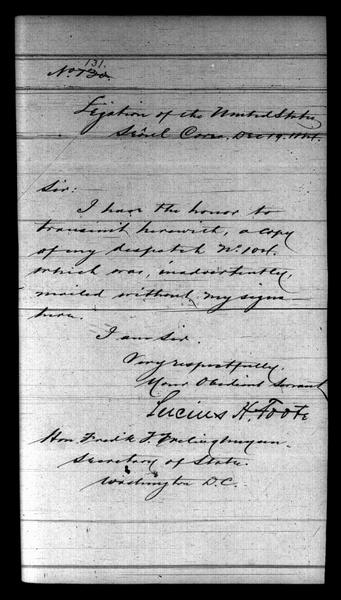 131.
No. 130.
Legation of the United States
Séoul Corea, Dec 19. 1884.
Sir:
I have the honor to
transmit herewith, a copy
of my despatch No.
which was, inadvertently,
mailed without my signa-
ture.
I am Sir.
Very respectfully.
Your Obedient Servant
Lucius H. Foote
Hon. Fredk T. Frelinghuysen.
Secretary of State.
Washington D.C.